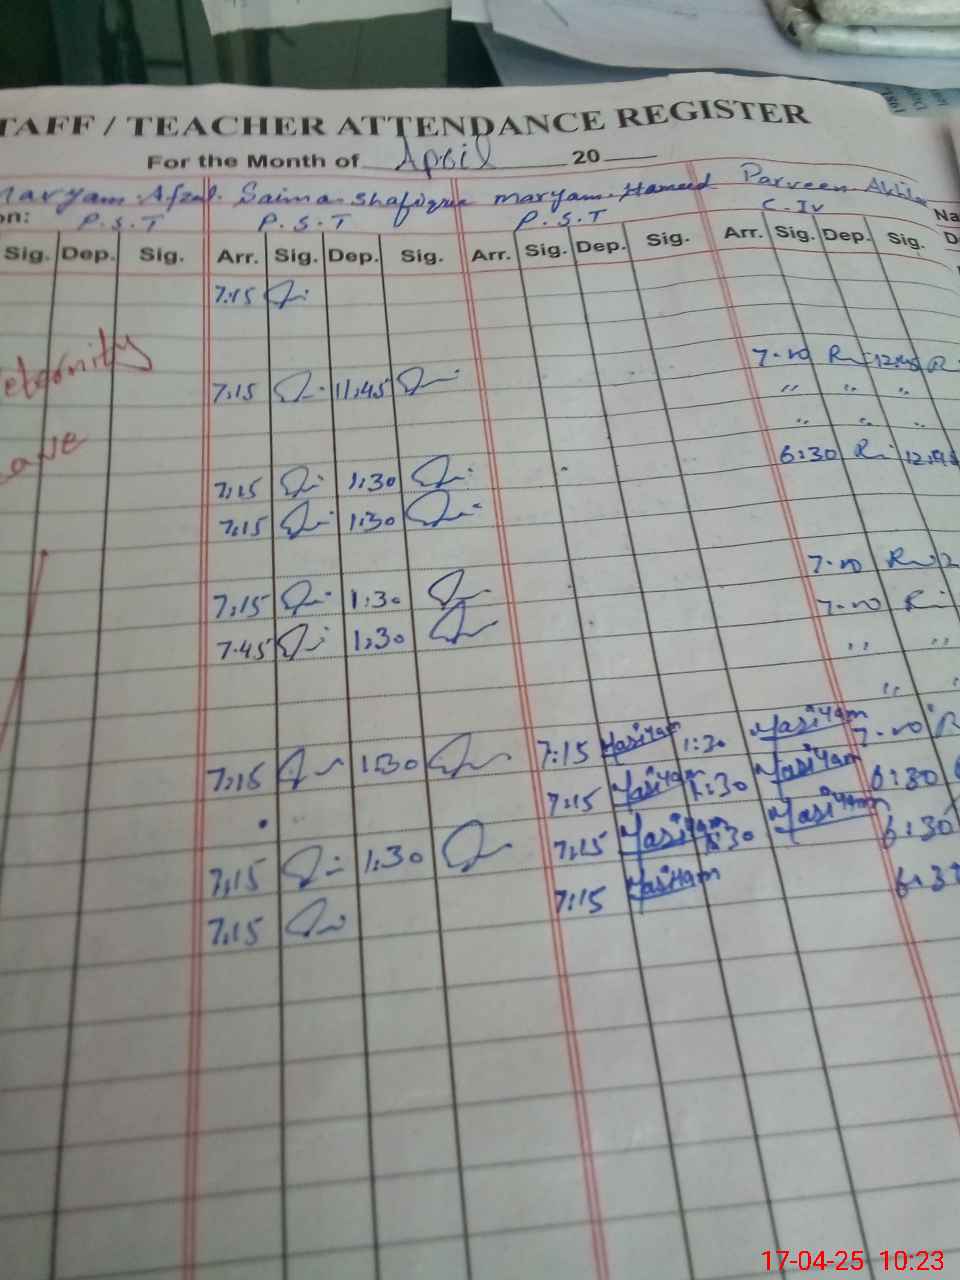 TAFF / TEACHER ATTENDANCE REGISTER
For the Month of April 20
Maryam Afzal Saima Shafique Maryam Hameed Parveen Akh
on: P.S.T P.S.T P.S.T C.IV Na
Sig. Dep. Sig. Arr. Sig. Dep. Sig. Arr. Sig. Dep. Sig. Arr. Sig. Dep. Sig. D
7:15
eternity 7:15 11:45 7-00 12:45
" " "
eave " " "
7:15 1:30 6:30 12:45
7:15 1:30
7:15 1:30 7-00
7:45 1:30 7-00
" "
"
7:15 1:30 7:15 Mariyam 1:30 Mariyam 7-00
7:15 Mariyam 1:30 Mariyam 6:30
7:15 1:30 7:15 Mariyam 1:30 Mariyam 6:30
7:15 7:15 Mariyam 6:30
17-04-25 10:23